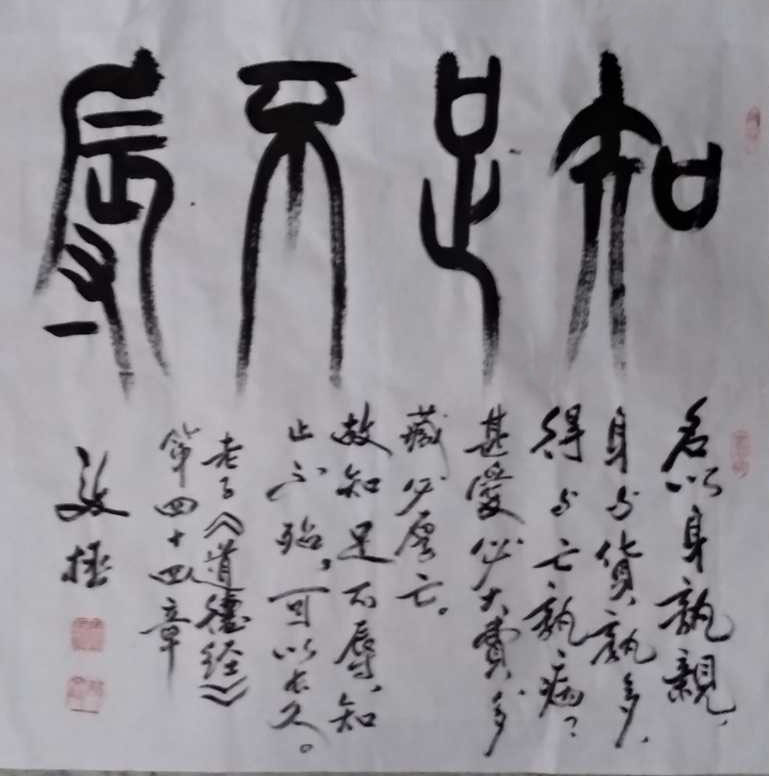 知足不辱
名以身孰親，
身与貨孰多，
得与亡、孰病？
甚愛必大費，多
藏必厚亡。
故知足不辱、知
止不殆，可以长久。
老子《道德经》
第四十四章